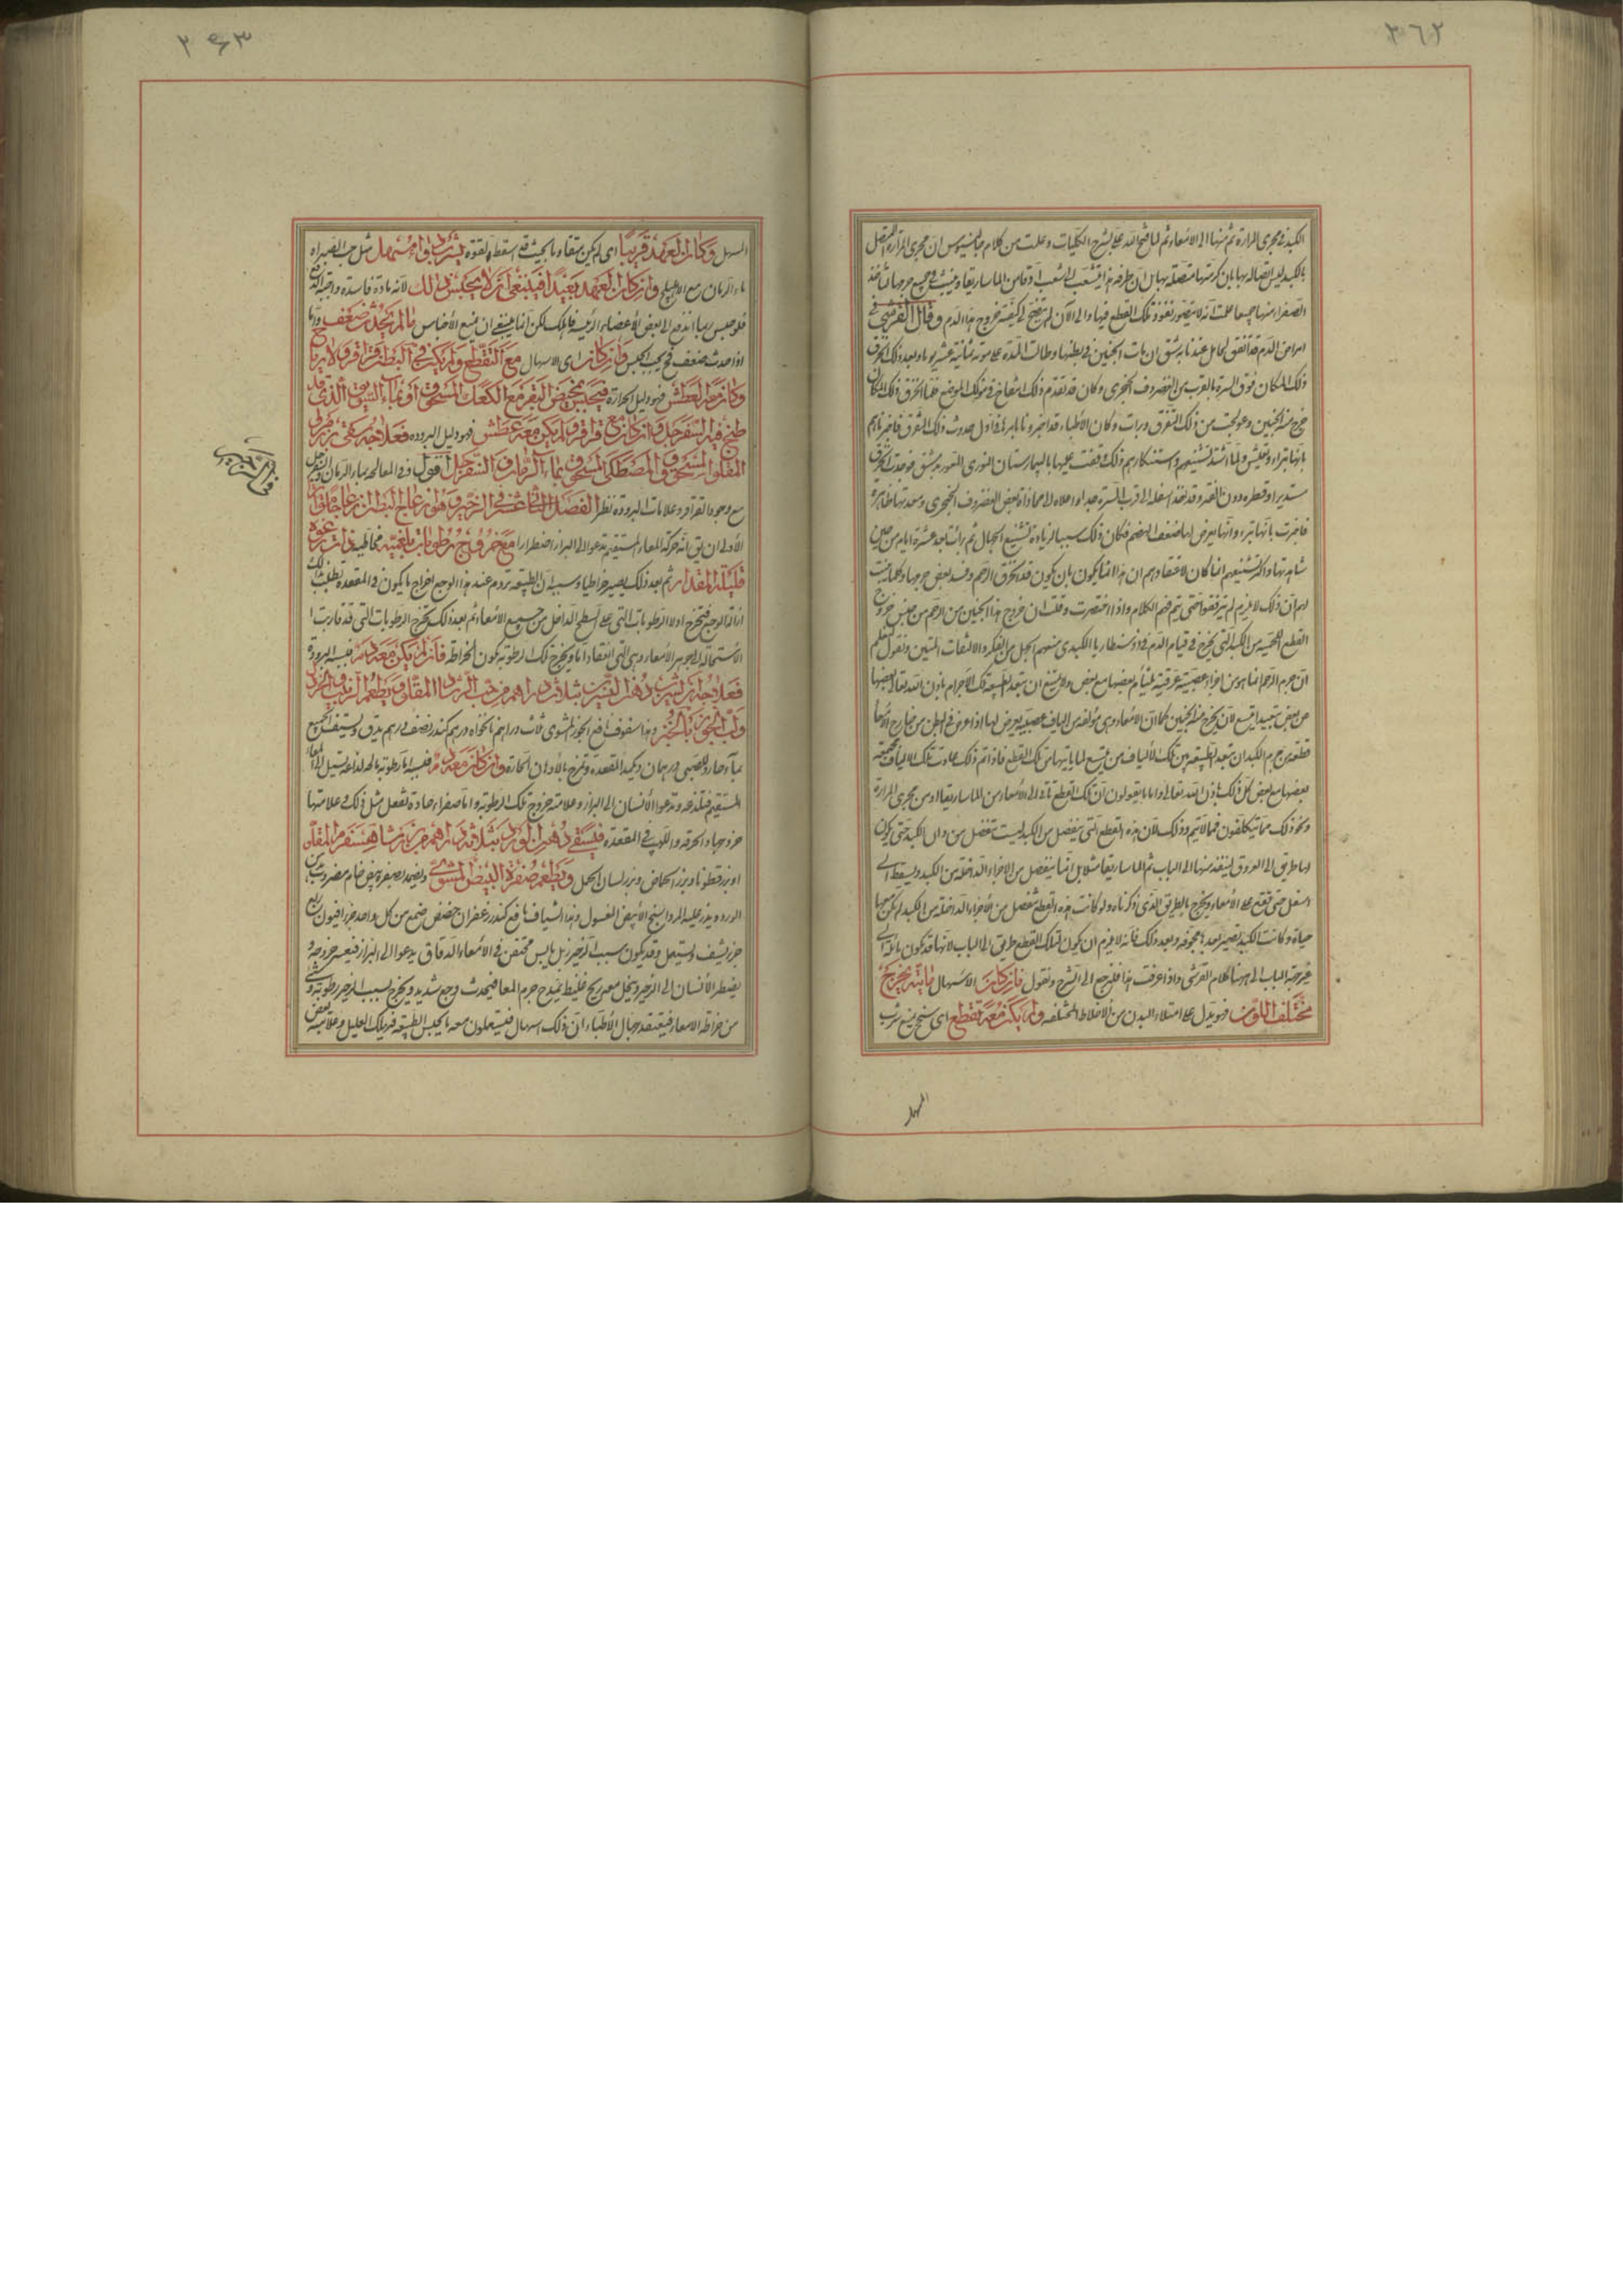 ٣٦٢
الكبد فى مجرى المرارة ثم منها الى الامعاء ثم لما فتح الله على بشرح الكليات وعلمت من كلام جالينوس ان مجرى المرارة المتصل
بالكبد ليس اتصاله بها بان كرمتها متصلة بها بل ان طرفه هذا يتشعب الى شعب ادق من الماساريقا وينبث فى جميع جرمها لتأخذ
الصفراء منها جميعا علمت انه لا يتصور نفوذ تلك القطع فيها والى الآن لم يتضح لى كيفية خروج هذا الدم وقال القرشى فى
امراض الدم قد اتفق لحامل عندنا بدمشق ان مات الجنين فى بطنها وطالت المدة على موته ثمانية عشر يوما وبعد ذلك انخرق
ذلك المكان فوق السرة بالقرب من الغضروف الحنجرى وكان قد تقدم ذلك انتفاخ فى ذلك الموضع فلما انخرق ذلك المكان
خرج منه الجنين وعولجت من ذلك التفرق وبرأت وكان الأطباء قد اخبرونا بامرها فى اول حدوث ذلك التفرق فاخبرناهم
بانها تبرأ وتعيش ولما اشتد تشنيعهم واستنكارهم ذلك وقفت عليها بالبيمارستان النورى المعمور بدمشق فوجدت الخرق
مستديرا وقطره دون العقد وقد نفذ اسفله الى قرب السرة جدا واعلاه الى محاذاة بعض الغضروف الحنجرى وسعتها ظاهرة
فاخبرت بانها تبرأ وانها يعرض لها ضعف الهضم فكان ذلك سببا لزيادة تشنيع الجهال ثم برأت بعد عشرة ايام من حين
شاهدتها واكثر تشنيعهم انما كان لاعتقادهم ان هذا انما يكون بان يكون قد انخرق الرحم وفسد بعض جرمها وكلما بينت
لهم ان ذلك لا يلزم لم يرفقوا حتى يتم فهم الكلام واذا اختصرت وقلت ان خروج هذا الجنين من الرحم من جنس خروج
القطع اللحمية من الكبد التى يخرج فى قيام الدم
ان جرم الرحم انما هو من اجزاء عصبية عرقية يلتئم بعضها مع بعض ولا يمتنع ان تبعد الطبيعة تلك الاجرام باذن الله تعالى بعضها
عن بعض تبعيدا يتسع لان يخرج منه الجنين كما ان الامعاء وهى مؤلفة من الياف عصبية يعرض لها اذا عرض فى البطن من خارج الامعاء
قطعة من جرم الكبد ان تبعد الطبيعة بين تلك الالياف حتى يتسع لما يأتيها من تلك القطع فاذا تم ذلك عادت تلك الالياف مجتمعة
بعضها مع بعض كل ذلك باذن الله تعالى واما ما يقولون ان تلك القطع تأتى الى الامعاء من الماساريقا او من مجرى المرارة
ونحو ذلك مما يتكلفون فمما لا يتم وذلك لان هذه القطع التى تنفصل من الكبد ليست تنفصل من داخل الكبد حتى يكون
لها طريق الى العروق لينفذ منها الى الباب ثم الماساريقا مثلا بل انما ينفصل من الاجزاء الداخلة من الكبد ويسقط الى
اسفل حتى تقع على الامعاء ويخرج بالطريق الذى ذكرناه ولو كانت هذه القطع تنفصل من الأجزاء الداخلة من الكبد لم تكن معها
حياة وكانت الكبد تصير بعدها مجوفة وبعد ذلك فانه لا يلزم ان يكون لتلك القطع طريق الى الباب لانها قد تكون مائلة الى
غير جهة الباب الى ههنا كلام القرشى واذا عرفت هذا فلنرجع الى الشرح ونقول فان كانت الاسهال مادته يخرج
مختلف اللون فهو يدل على امتلاء البدن من الأخلاط المختلفة ولم يكن معه تقطع اى سحج يمنع شرب
المسهل
٣٦٣
المسهل وكان العهد قريبا اى لم يكن متقادما بحيث قد اسقط القوة يشرب دواء مسهل مثل حب الصبر او
ماء الرمان مع الاهليلج وان كان العهد بعيدا فينبغى ان لا يحبس ذلك لانه مادة فاسدة واجبة الدفع
فلو حبس ربما اندفع الى بعض الأعضاء الرئيسة فاهلك لكن انما ينبغى ان يمنع الأحباس ما لم يحدث ضعف واما
اذا حدث ضعف فح يجب الحبس وان كان اى الاسهال مع التقطع ولم يكن فى البطن قراقر ولا رياح
وكان معه العطش فهو دليل الحرارة فيحبس بحميض البقر مع الكعك المسحوق او بماء السويق الذى قد
طبخ فيه السفرجل وان كان مع قراقر ولم يكن معه عطش فهو دليل البرودة فعلاجه سقى بزر مرو
المقلو المسحوق والمصطكى المسحوق بماء الرمان والسفرجل اقول وفى المعالجة بماء الرمان والسفرجل
مع وجود القراقر وعلامات البرودة نظر الفصل الثانى عشر فى الزحير وهو انزعاج البطن انزعاجا متواترا
الأولى ان يق انه حركة المعاء المستقيم تدعو الى البراز اضطرارا مع خروج رطوبات بلغمية مخاطية ذات رغوة
قليلة المقدار ثم بعد ذلك يصير خراطيا وسببه ان الطبيعة تروم عند هذا الوجع اخراج ما يكون فى المقعدة تطلب بذلك
ازالة الوجع فتخرج اولا الرطوبات التى على السطح الداخل من جميع الامعاء ثم بعد ذلك تخرج الرطوبات التى قد قاربت
الاستحالة الى جوهر الأمعاء وهى التى انتقادها ويخرج تلك الرطوبة يكون الخراطة فان لم يكن معه دم فسببه البرودة
فعلاجه ان يشرب دهن الشيرج بثلاثة دراهم من حب الرشاد المقلو ويطعم الزبيب والجوز
ولب الجوز بالخبز وهذا سفوف نافع الجوز المشوى ثلاث دراهم نانخواه درهم كندر نصف درهم يدق ويستف الجميع
بماء حار وللصبى درهمان ويكمد المقعدة ويمرخ بالادهان الحارة وان كان معه دم فسببه اما رطوبة مالحة لذاعة تسيل الى المعاء
المستقيم فتلذعه وتدعو الأنسان الى البراز وعلامته خروج تلك الرطوبة واما صفراء حادة تفعل مثل ذلك وعلامتها
خروجها والحرقة واللهيب فى المقعدة فليسقى دهن الورد بثلاثة دراهم من بزر شاهسفرم المقلو
او بزر قطونا وبزر الحماض وبزر لسان الحمل ويطعم صفرة البيض المشوى ويضمد بصفرة بيض خام مضروب بدهن
الورد ويذر عليه المرداسنج الأبيض المغسول وهذا شياف نافع كندر زعفران حضض صمغ من كل واحد جزء افيون ربع
جزء يشيف ويستعمل وقد يكون سبب الزحير زبل يابس محتقن فى الامعاء الدقاق يدعو الى البراز فيعسر خروجه و
يضطر الأنسان الى الزحير ويتخلل معه ريح غليظ يمدد جرم المعا فيحدث وجع شديد ويخرج بسبب الزحير رطوبة وشئ
من خراطة الامعاء فيعتقد جهال الأطباء ان ذلك اسهال فيستعملون معه ما يحبس الطبيعة فيهلك العليل وعلامته بعض